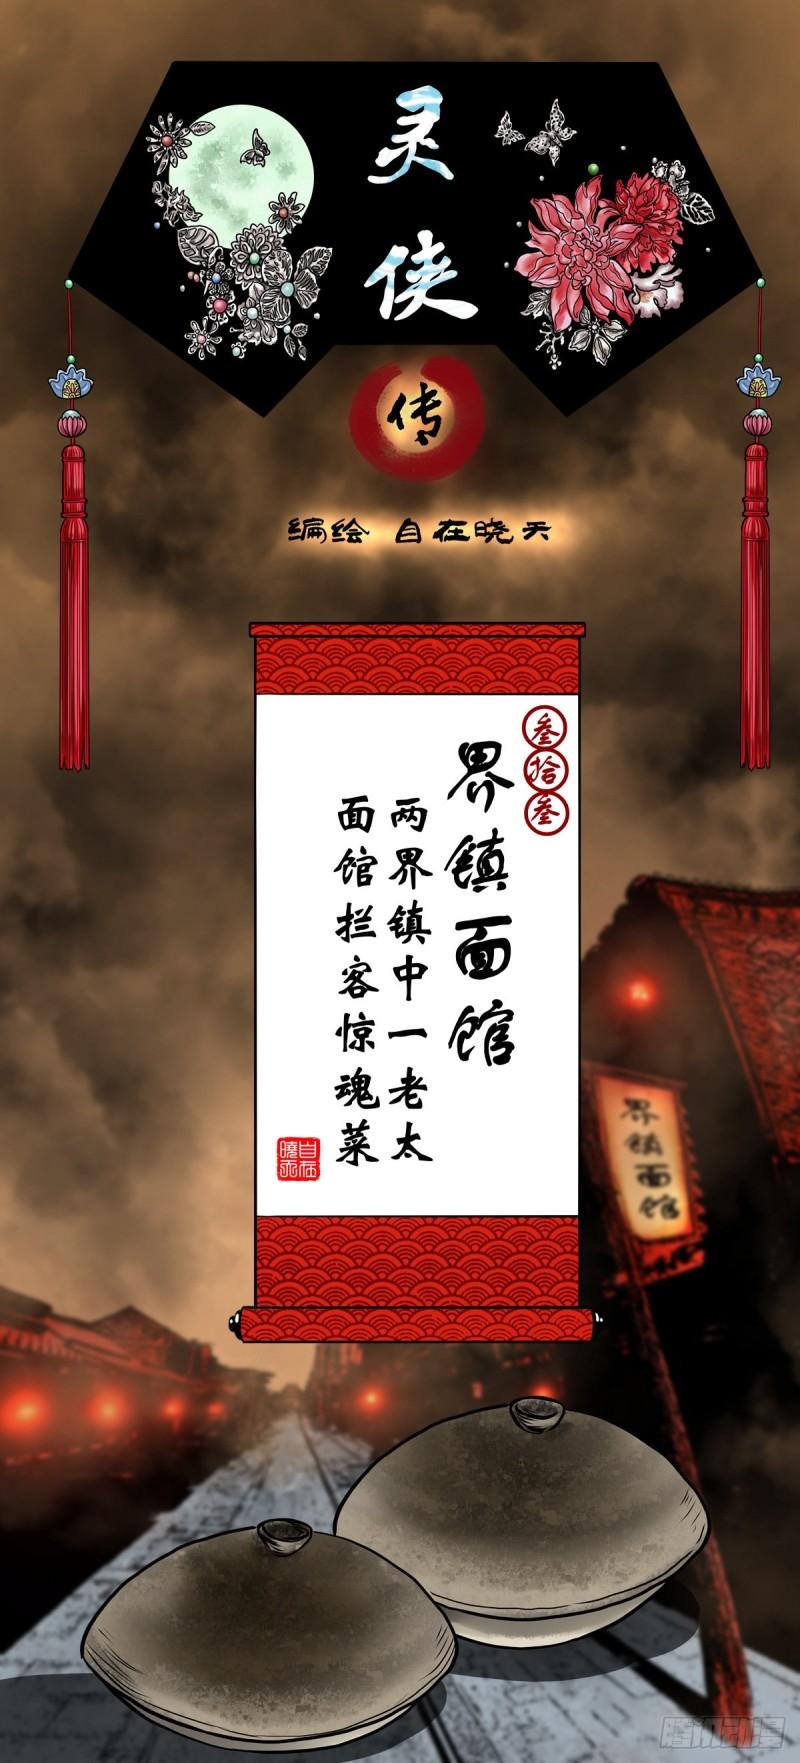 灵侠
传
编绘 自在晓天
叁拾叁
界镇面馆
两界镇中一老太
面馆拦客惊魂菜
自在
曉天
界镇面馆
腾讯动漫